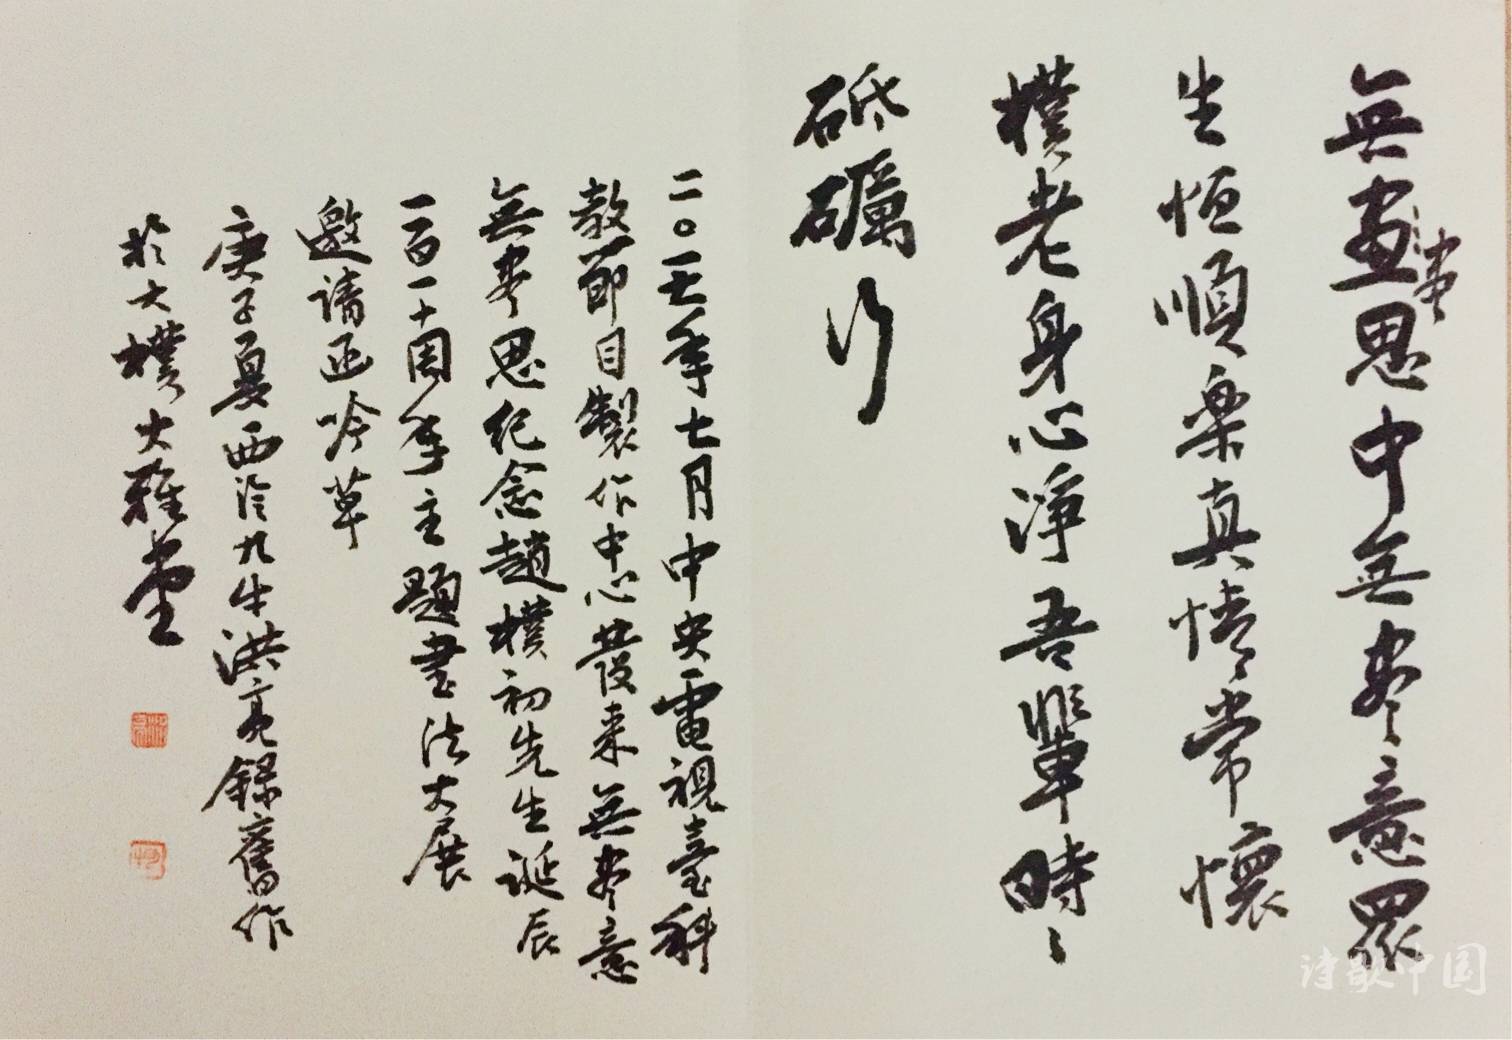 無畫思中無尽意眾
尽
生恆順樂真情常懷
樸老身心淨吾輩時々
砥礪行
二〇一七年七月中央電視臺科
教節目製作中心發来無尽意
無尽思纪念趙樸初先生誕辰
一百一十周年主題書法大展
邀請函吟草
庚子夏西泠九牛洪亮録舊作
於大樸大雅堂
诗歌中国